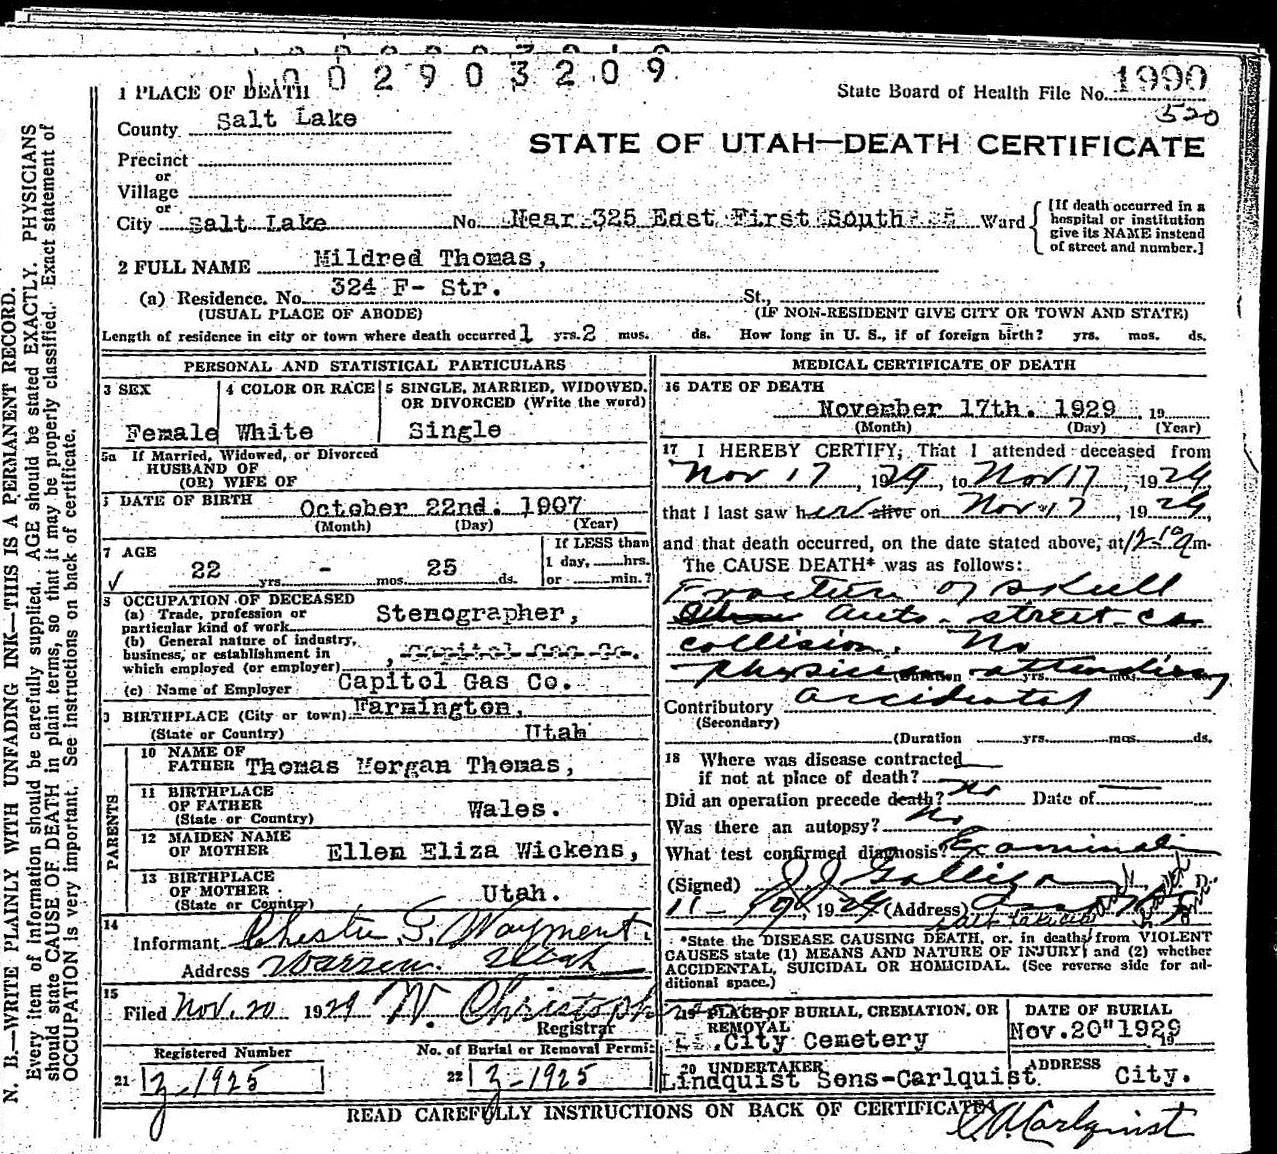 002903209
1 PLACE OF DEATH
State Board of Health File No. 1990
520
County Salt Lake
STATE OF UTAH—DEATH CERTIFICATE
Precinct
or
Village
or
City Salt Lake No. Near 325 East First South Ward
[If death occurred in a
hospital or institution
give its NAME instead
of street and number.]
2 FULL NAME Mildred Thomas,
(a) Residence. No. 324 F- Str. St.,
(USUAL PLACE OF ABODE) (IF NON-RESIDENT GIVE CITY OR TOWN AND STATE)
Length of residence in city or town where death occurred 1 yrs. 2 mos. ds. How long in U. S., if of foreign birth? yrs. mos. ds.
PERSONAL AND STATISTICAL PARTICULARS
3 SEX
Female
4 COLOR OR RACE
White
5 SINGLE, MARRIED, WIDOWED,
OR DIVORCED (Write the word)
Single
5a If Married, Widowed, or Divorced
HUSBAND OF
(OR) WIFE OF
DATE OF BIRTH October 22nd. 1907
(Month) (Day) (Year)
7 AGE
22 yrs. - mos. 25 ds.
If LESS than
1 day, hrs.
or min.?
8 OCCUPATION OF DECEASED
(a) Trade, profession or
particular kind of work Stenographer,
(b) General nature of industry,
business, or establishment in
which employed (or employer) , Capitol Gas Co.
(c) Name of Employer Capitol Gas Co.
BIRTHPLACE (City or town) Farmington,
(State or Country) Utah
PARENTS
10 NAME OF
FATHER Thomas Morgan Thomas,
11 BIRTHPLACE
OF FATHER
(State or Country) Wales.
12 MAIDEN NAME
OF MOTHER Ellen Eliza Wickens,
13 BIRTHPLACE
OF MOTHER
(State or Country) Utah.
14
Informant Chester S. Wayment.
Address Warren Utah
15
Filed Nov. 20 1929 W. Christoph
Registrar
Registered Number
21 Z-1925
No. of Burial or Removal Permit
22 Z-1925
MEDICAL CERTIFICATE OF DEATH
16 DATE OF DEATH
November 17th. 1929 19
(Month) (Day) (Year)
17 I HEREBY CERTIFY, That I attended deceased from
Nov 17, 1929, to Nov 17, 1929,
that I last saw her alive on Nov 17, 1929,
and that death occurred, on the date stated above, at m.
The CAUSE DEATH* was as follows:
Fracture of Skull
Auto-street-car
collision. No
physician attending
(Duration yrs. mos.
Contributory accidental
(Secondary)
(Duration yrs. mos. ds.
18 Where was disease contracted
if not at place of death?
Did an operation precede death? No Date of
Was there an autopsy? No
What test confirmed diagnosis? Examination
(Signed) J J Galligan
11-19, 1929 (Address)
*State the DISEASE CAUSING DEATH, or. in deaths from VIOLENT
CAUSES state (1) MEANS AND NATURE OF INJURY and (2) whether
ACCIDENTAL, SUICIDAL OR HOMICIDAL. (See reverse side for ad-
ditional space.)
19 PLACE OF BURIAL, CREMATION, OR
REMOVAL
City Cemetery
DATE OF BURIAL
Nov.20" 1929
19
20 UNDERTAKER
Lindquist Sons-Carlquist
ADDRESS City.
READ CAREFULLY INSTRUCTIONS ON BACK OF CERTIFICATE
C. A. Carlquist
N. B.—WRITE PLAINLY WITH UNFADING INK—THIS IS A PERMANENT RECORD.
Every item of information should be carefully supplied. AGE should be stated EXACTLY. PHYSICIANS
should state CAUSE OF DEATH in plain terms, so that it may be properly classified. Exact statement of
OCCUPATION is very important. See instructions on back of certificate.